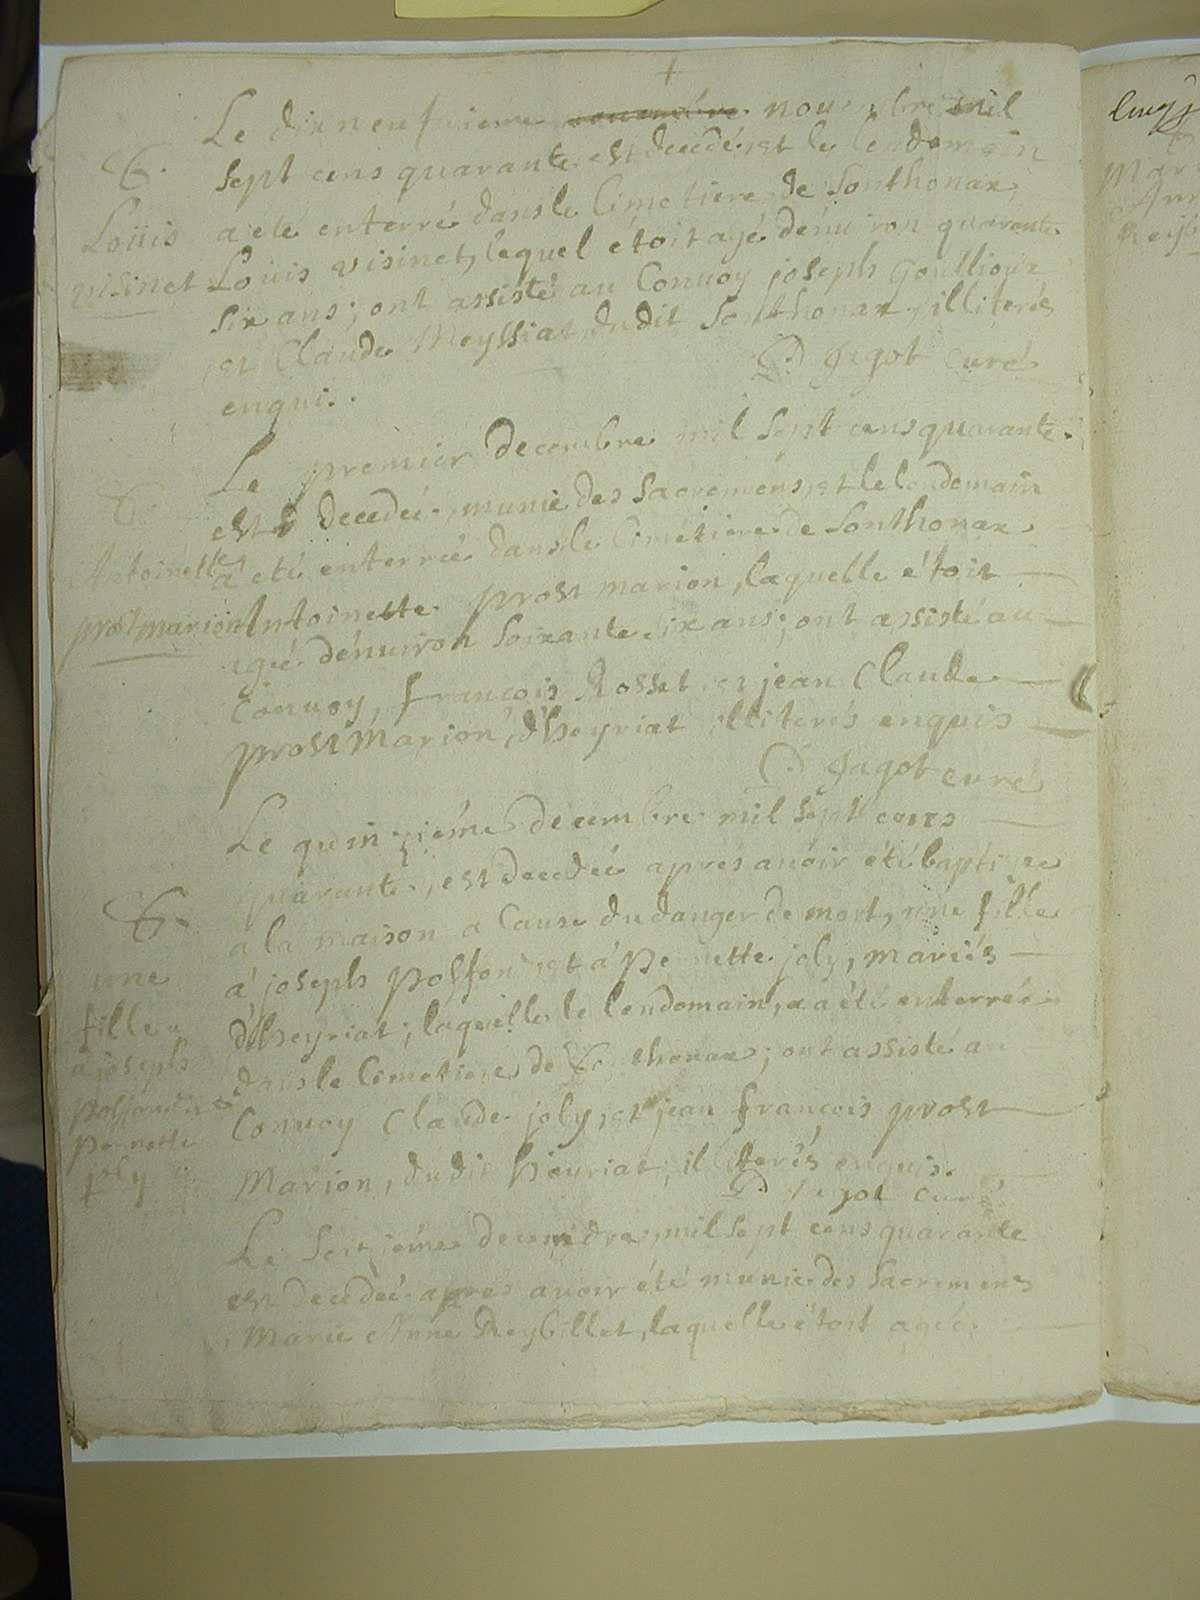 Le dixneufvieme nouembre mil
sept cens quarante est decedé, et le lendemain
S.
Loüis
visinet
a eté enterré dans le Cimetiere de Sonthonax,
Loüis visinet, lequel étoit agé dénuiron quarante
six ans; ont assisté au Conuoy joseph Goullioux
et Claude Meyssiat, dudit Sonthonax, illiterés
enquis.
D. Jagot Curé
Le premier decembre mil sept cens quarante
S.
Antoinette
prost marion
est decedeé, munie des sacremens, et le lendemain
a eté enterreé dans le Cimétiere de Sonthonax
Antoinette prost marion, laquelle étoit
agé dénuiron soixante six ans; ont assisté au
Conuoy, francois Rosset et jean Claude
prost Marion, d'heyriat illiterés enquis
D. Jagot curé
Le quinziéme decembre mil sept cens
quarante, est decedeé apres auoir été baptiseé
S.
une
fille
a joseph
a la maison a Cause du danger de mort, une fille
á joseph et á Pernette joly, mariés
d'heyriat; laquelle le lendemain, a été enterreé
dans le Cimetiere de Sonthonax; ont assisté au
Pernette
joly
Conuoy Claude joly, et jean francois prost
Marion, dudit heyriat, illiterés enquis.
D. Jagot curé
Le seiziéme decembre, mil sept cens quarante
est decedeé apres auoir été munie des sacremens
Marie Anne Reybillet, laquelle étoit ageé